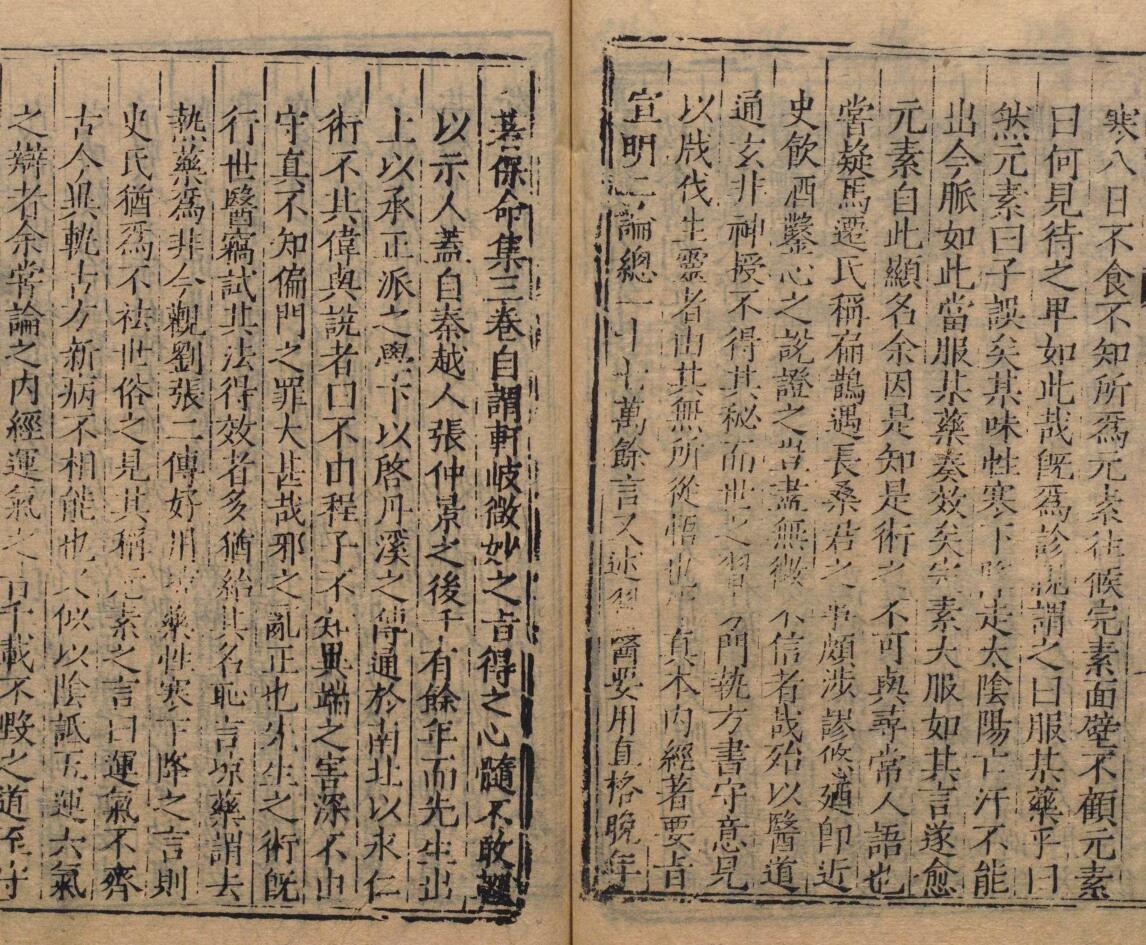 寒八日不食不知所爲元素往候完素面壁不顧元素
曰何見待之卑如此哉旣爲診脈謂之曰服某藥乎曰
然元素曰子誤矣某味性寒下降走太陰陽亡汗不能
出今脈如此當服某藥奏效矣完素大服如其言遂愈
元素自此顯名余因是知是術之不可與尋常人語也
嘗疑馬遷氏稱扁鵲遇長桑君之事頗涉謬悠廼即近
史飲酒鑿心之說證之豈盡無徵不信者哉殆以醫道
通玄非神授不得其秘而世之習專門執方書守意見
以戕伐生靈者由其無所從悟也守真本內經著要旨
宣明二論總一十七萬餘言又述習醫要用直格晚年
著保命集三卷自謂軒岐微妙之旨得之心髓不敢
以示人蓋自秦越人張仲景之後千有餘年而先生出
上以承正派之學下以啓丹溪之傳通於南北以永仁
術不其偉與說者曰不由程子不知異端之害深不由
守真不知偏門之罪大甚哉邪之亂正也先生之術旣
行世醫竊試其法得效者多猶紿其名恥言凉藥謂去
熱藥爲非今觀劉張二傳好用凉藥性寒下降之言則
史氏猶爲不袪世俗之見其稱元素之言曰運氣不齊
古今異軌古方新病不相能也又似以陰詆五運六氣
之辯者余嘗論之內經運氣之 千載不毀之道至守